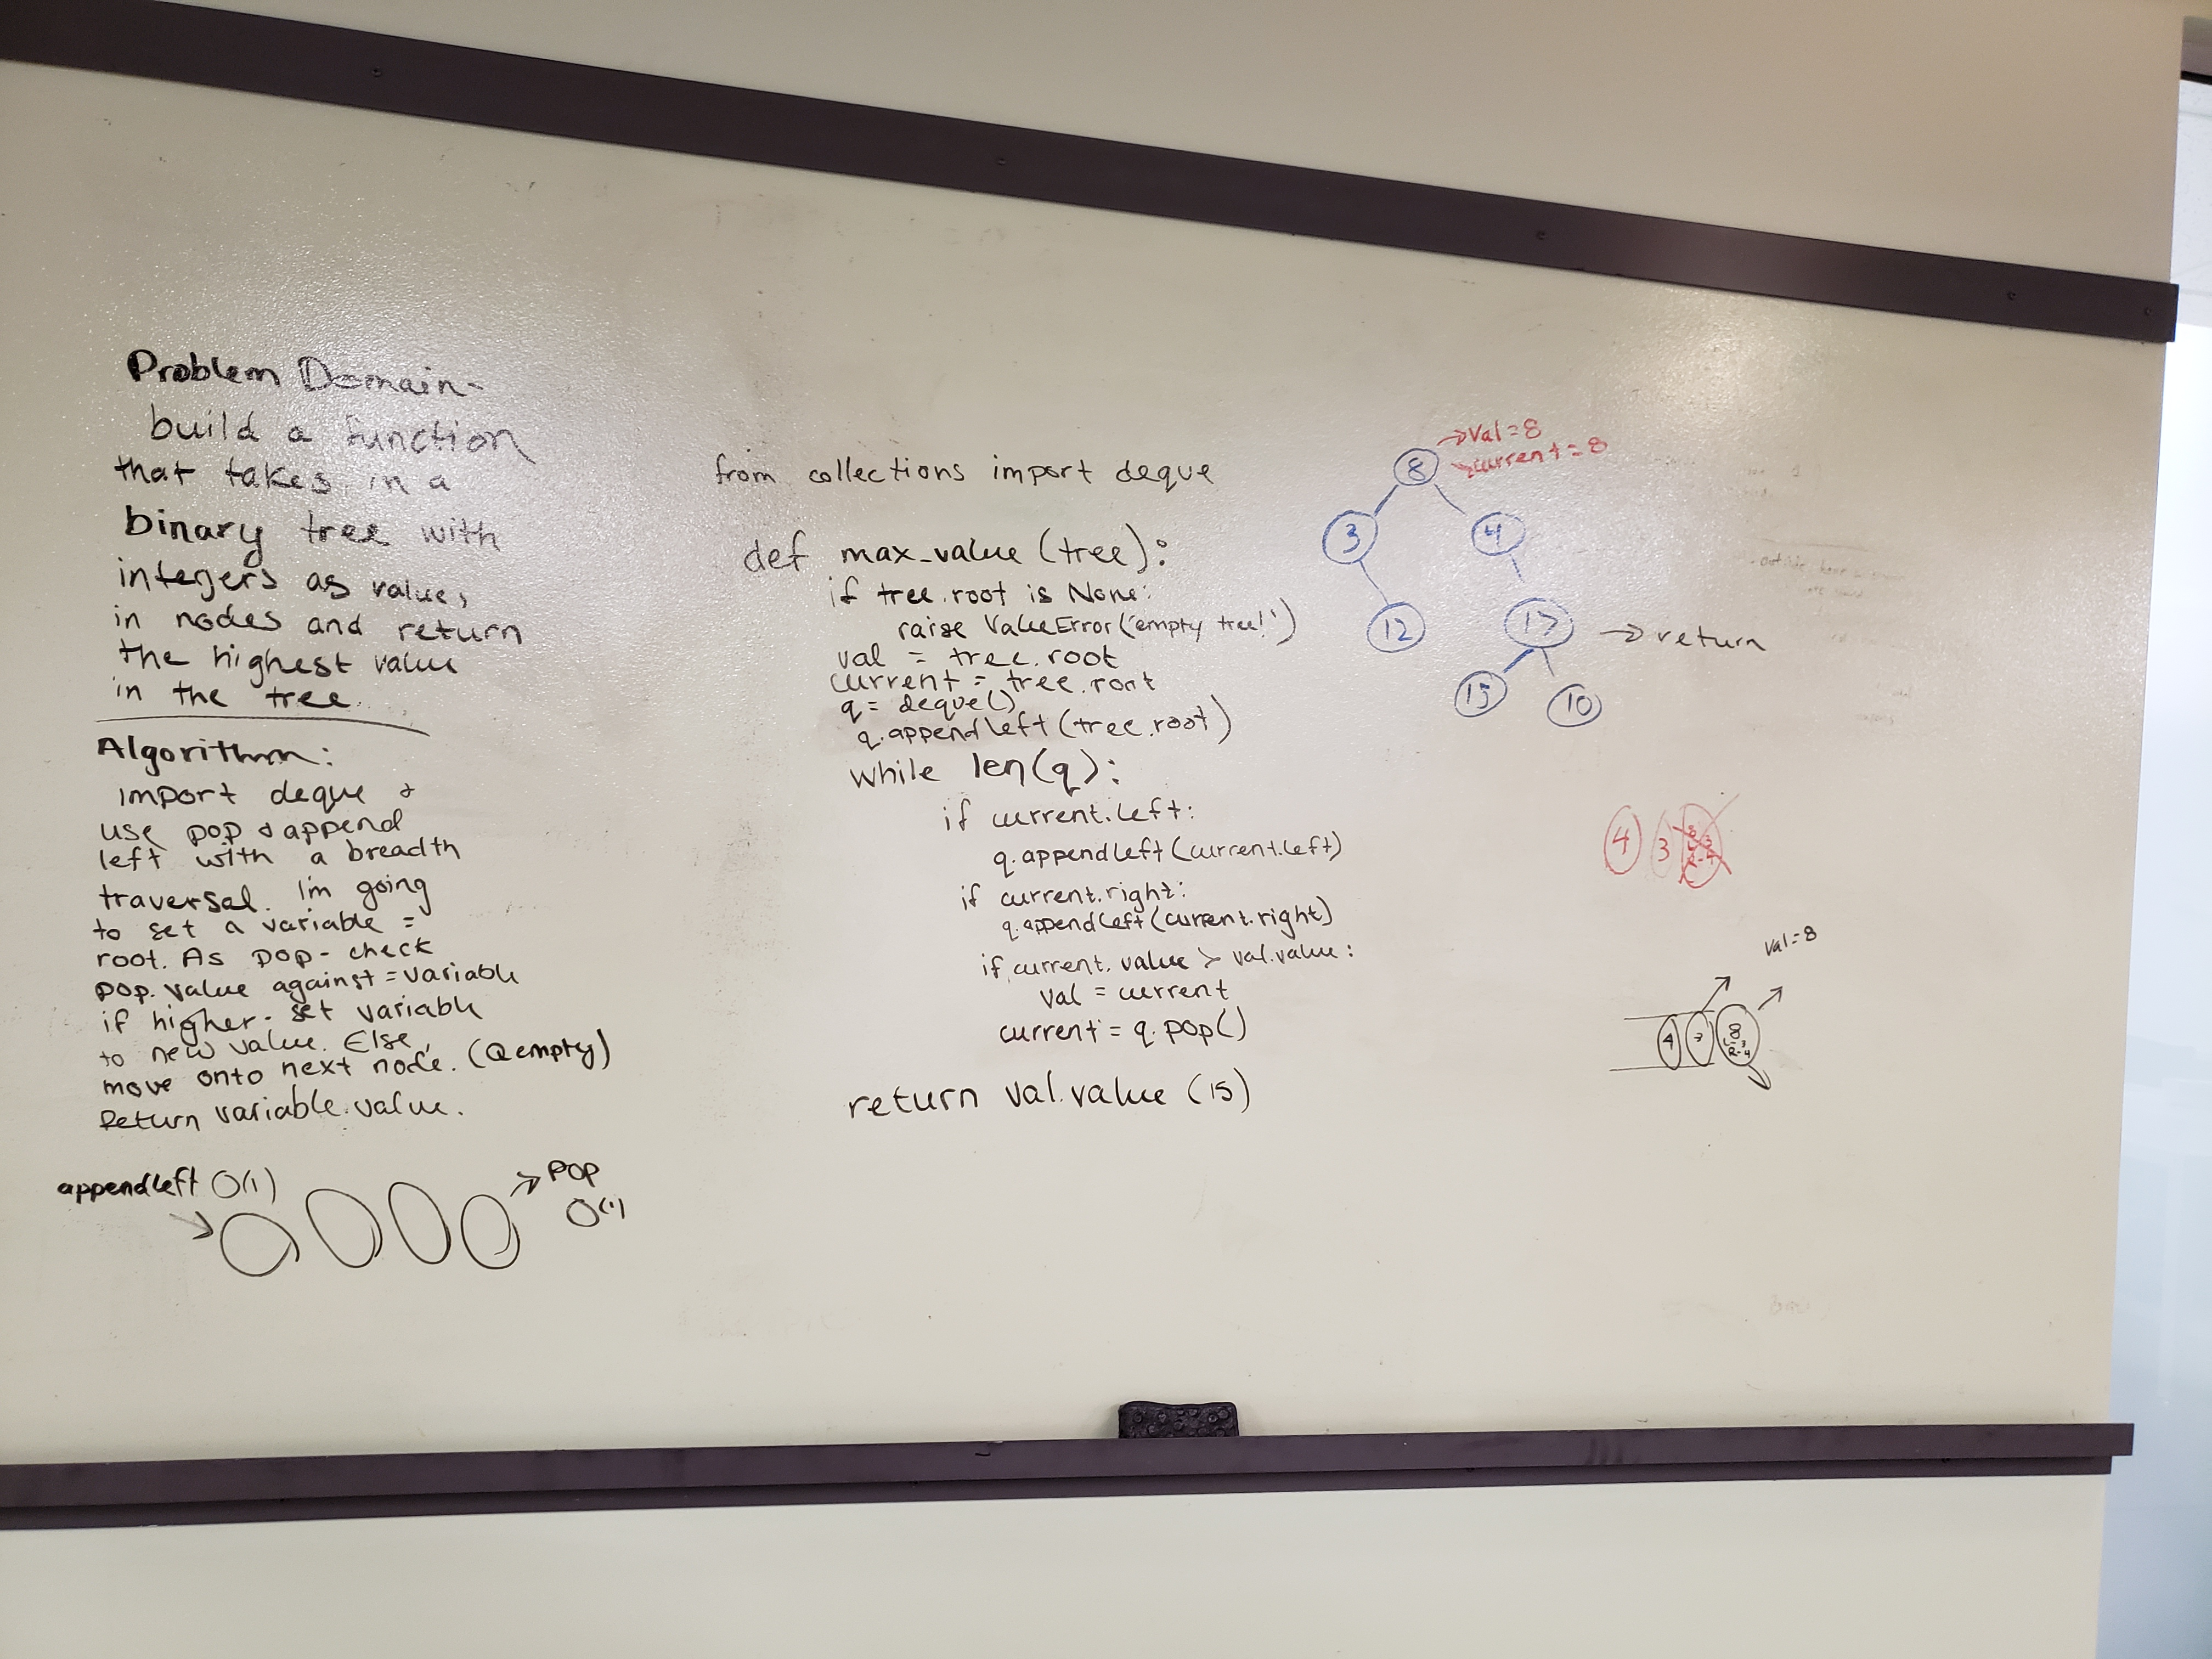 Problem Domain-
build a function
that takes in a
binary tree with
integers as values
in nodes and return
the highest value
in the tree.
Algorithm:
import deque &
use pop & append
left with a breadth
traversal. I'm going
to set a variable =
root. As pop - check
pop.value against = variable
if higher - set variable
to new value. Else,
move onto next node. (Q empty)
Return variable.value.
appendleft O(1)
→ pop
O(1)
from collections import deque
def max_value (tree):
if tree.root is None:
raise ValueError('empty tree!')
val = tree.root
current = tree.root
q = deque()
q.appendleft(tree.root)
while len(q):
if current.left:
q.appendleft(current.left)
if current.right:
q.appendleft(current.right)
if current.value > val.value:
val = current
current = q.pop()
return val.value (15)
→ Val = 8
→ current = 8
8
3 4
12 → return
15 10
4 3 8
val = 8
4 8